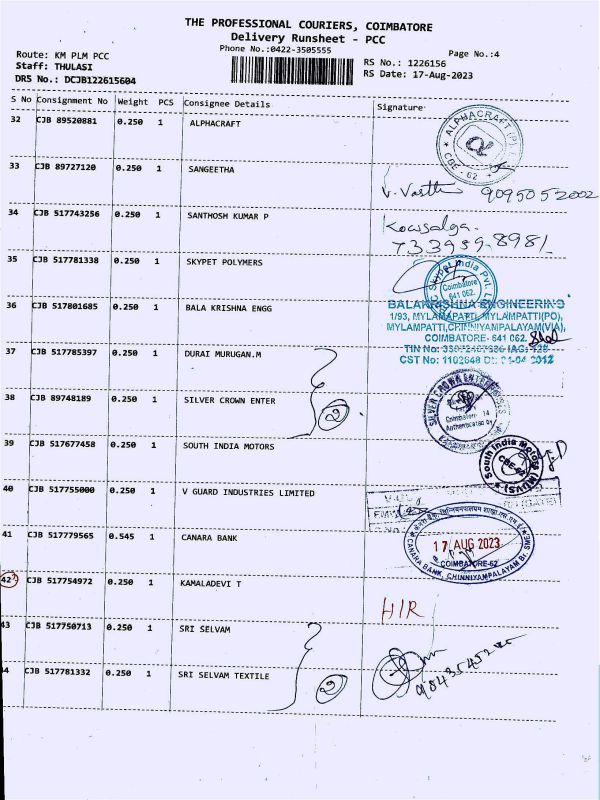 THE PROFESSIONAL COURIERS, COIMBATORE
Delivery Runsheet - PCC
Phone No.:0422-3505555
Page No.:4
Route: KM PLM PCC
Staff: THULASI
DRS No.: DCJB122615604
RS No.: 1226156
RS Date: 17-Aug-2023
S No Consignment No Weight PCS Consignee Details Signature
32 CJB 89520881 0.250 1 ALPHACRAFT
ALPHACRAFT (P)
CBE - 62
33 CJB 89727120 0.250 1 SANGEETHA
9095052002
34 CJB 517743256 0.250 1 SANTHOSH KUMAR P
Kowsalya.
733959.8981
35 CJB 517781338 0.250 1 SKYPET POLYMERS
India Pvt.
Coimbatore
641 062
36 CJB 517801685 0.250 1 BALA KRISHNA ENGG
BALAKRISHNA ENGINEERING
1/93, MYLAMPATTI, MYLAMPATTI(PO),
MYLAMPATTI,CHINNIYAMPALAYAM(VIA),
COIMBATORE- 641 062.
CST No: 1102648
37 CJB 517785397 0.250 1 DURAI MURUGAN.M
38 CJB 89748189 0.250 1 SILVER CROWN ENTER
2
SILVER CROWN ENTERPRISES
Coimbatore - 14
Authenticated by
39 CJB 517677458 0.250 1 SOUTH INDIA MOTORS
South India Motors
CBE-62
40 CJB 517755000 0.250 1 V GUARD INDUSTRIES LIMITED
41 CJB 517779565 0.545 1 CANARA BANK
17 AUG 2023
COIMBATORE-62
CANARA BANK, CHINNIYAMPALAYAM Br.
42 CJB 517754972 0.250 1 KAMALADEVI T
H/R
43 CJB 517750713 0.250 1 SRI SELVAM
44 CJB 517781332 0.250 1 SRI SELVAM TEXTILE
2